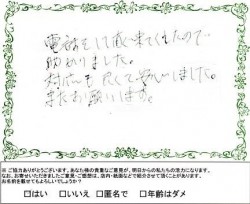 電話をして直ぐ来てくれたので
助かりました。
対応も良くて安心しました。
またお願いします。
※ ご協力ありがとうございます。あなた様の貴重なご意見が、明日からの私たちの活力になります。
なお、お寄せいただきましたご意見・ご感想は、店内・紙面などで紹介させて頂くことがございます。
お名前を載せてもよろしいでしょうか?
□はい □いいえ □匿名で □年齢はダメ